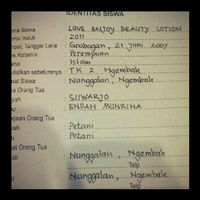 IDENTITAS SISWA
Siswa LOVE ENJOY BEAUTY LOTION
Induk 2011
Tempat, Tanggal Lahir Grobogan, 21 Juni 2007
Kelamin Perempuan
Islam
Pendidikan sebelumnya TK 2 Ngembak
Nunggalan, Ngembak
Orang Tua
SUWARJO
ENDAH MUNRINA
Orang Tua
Petani
Petani
Orang Tua
Nunggalan, Ngembak
Telp
Nunggalan, Ngembak
Telp